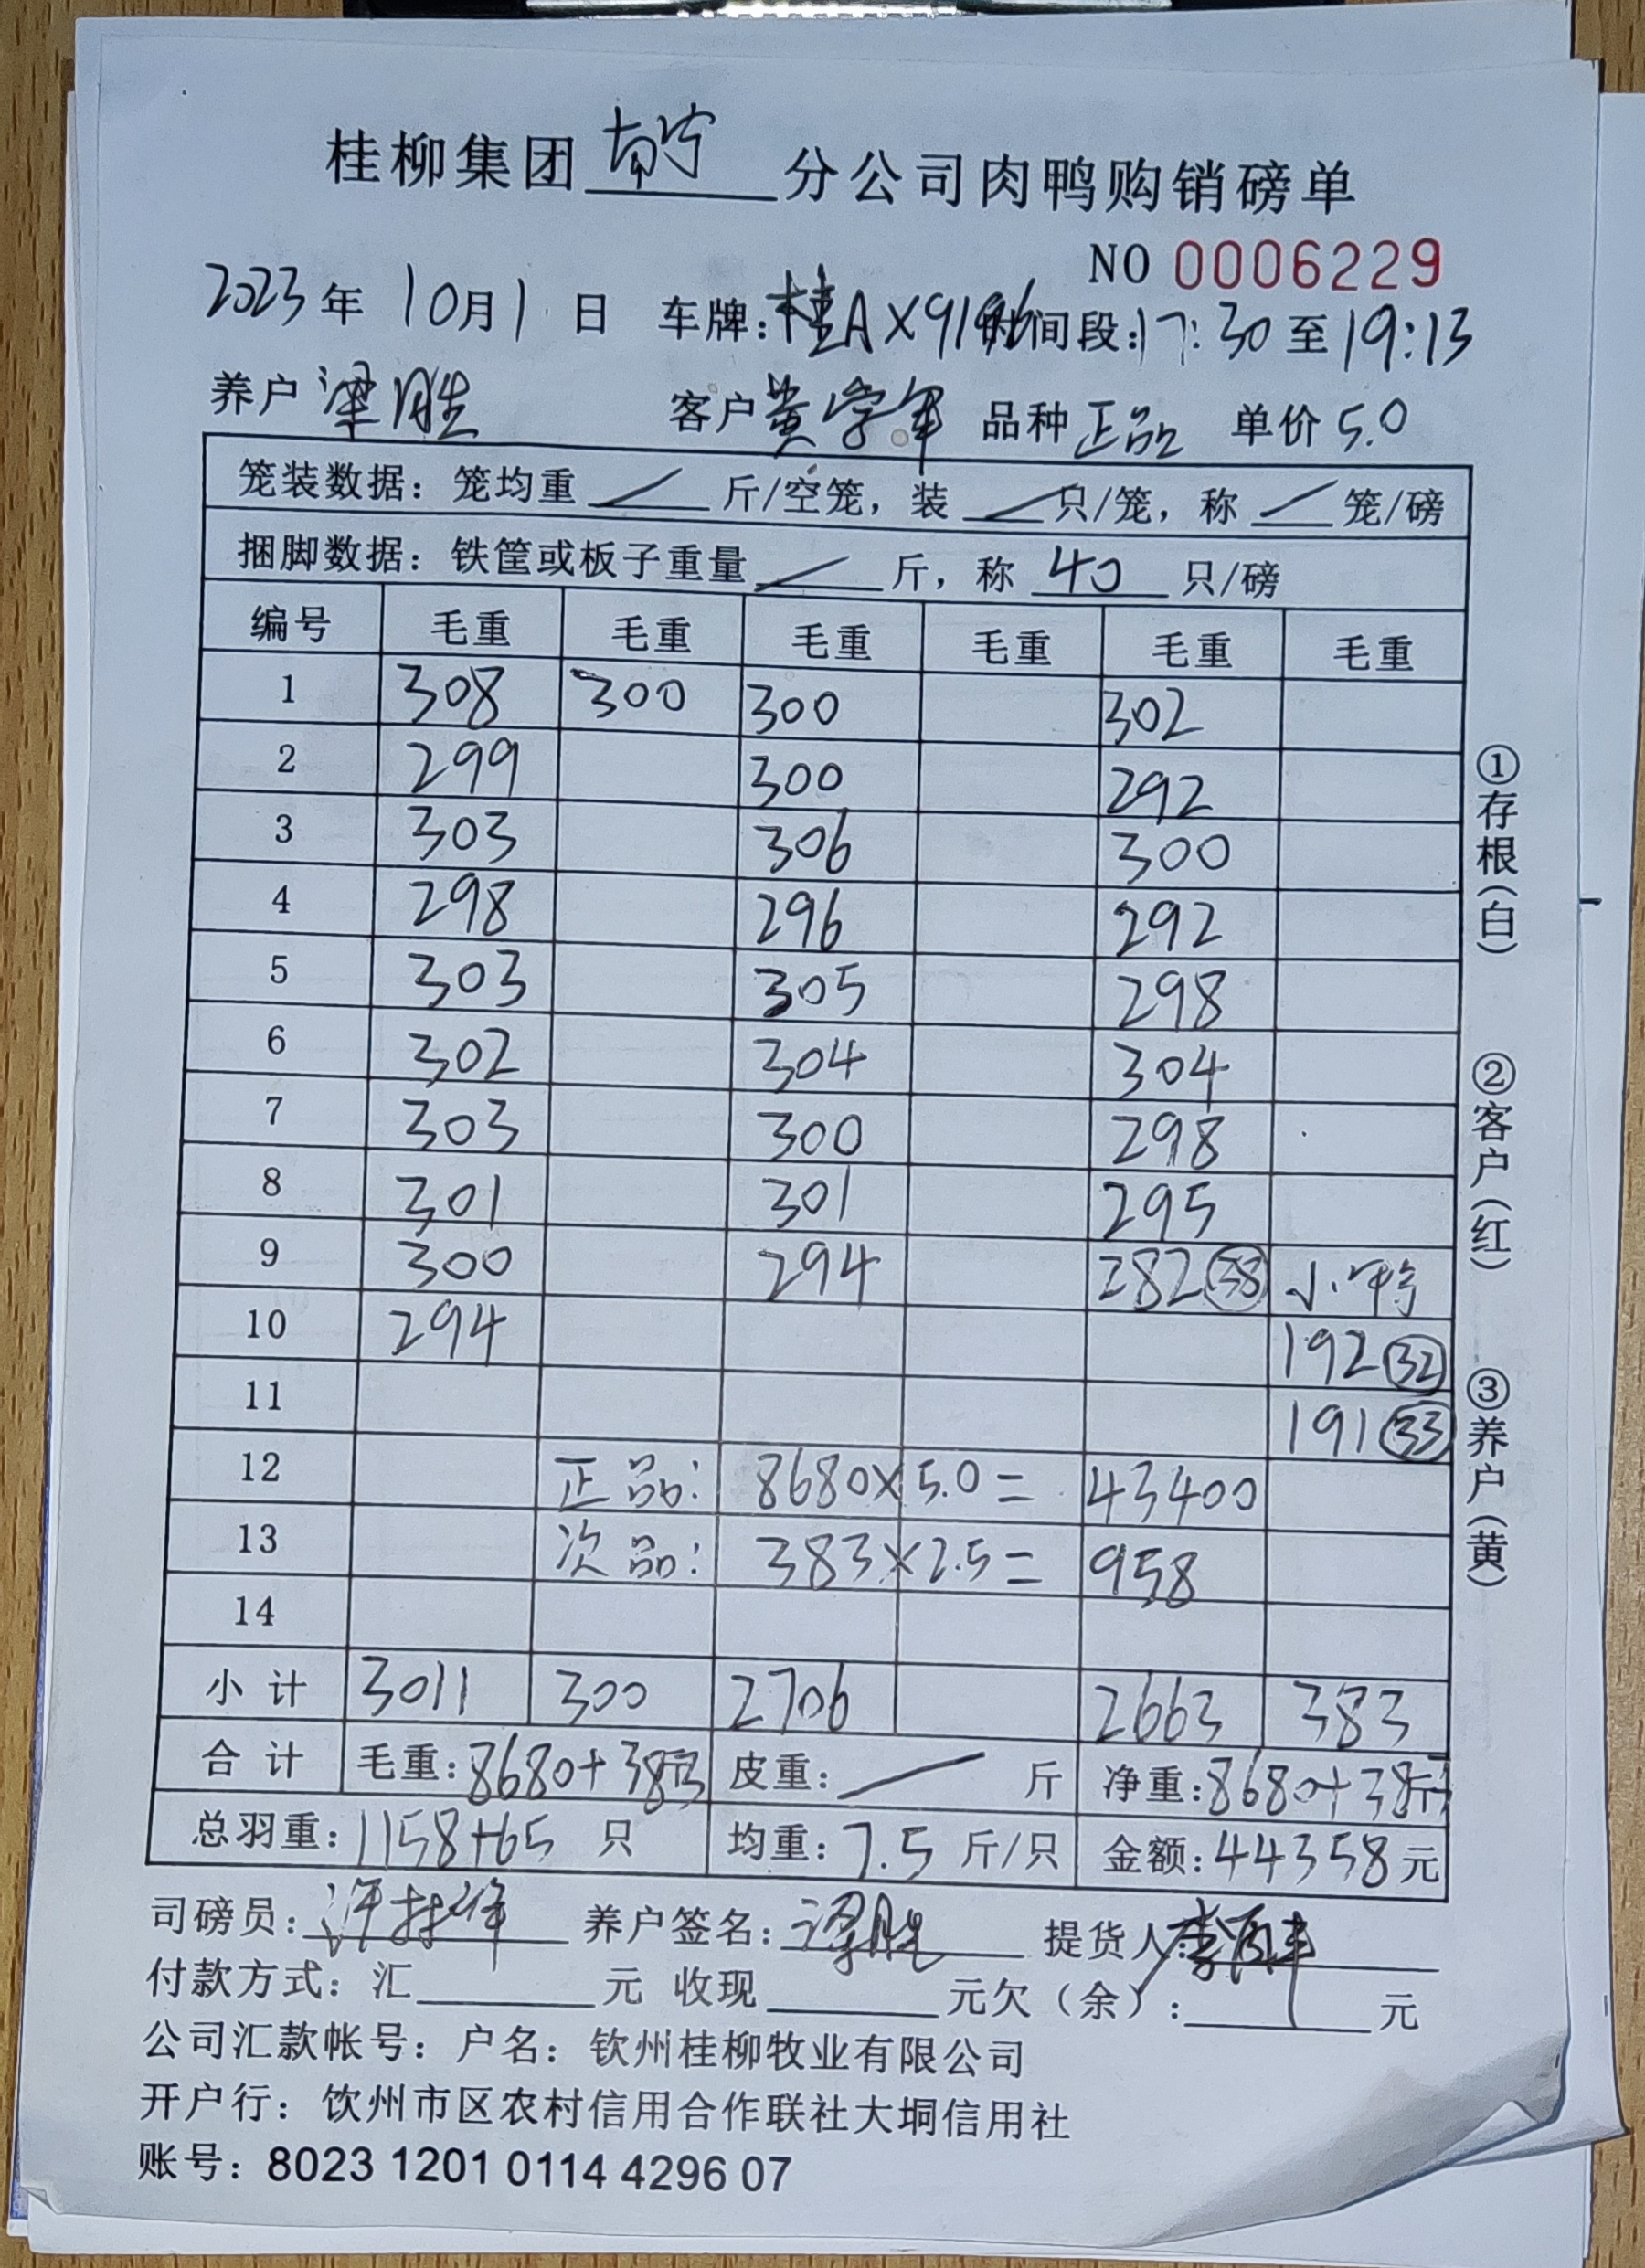 桂柳集团 南宁 分公司肉鸭购销磅单
NO 0006229
2023年 10月1日 车牌:桂AX9196 时间段:17:30至19:13
养户 梁胜 客户 黄学军 品种 正品 单价 5.0
笼装数据：笼均重 / 斤/空笼，装 / 只/笼，称 / 笼/磅
捆脚数据：铁筐或板子重量 / 斤，称 40 只/磅
编号 毛重 毛重 毛重 毛重 毛重 毛重
1 308 300 300 302
2 299 300 292
3 303 306 300
4 298 296 292
5 303 305 298
6 302 304 304
7 303 300 298
8 301 301 295
9 300 294 282 38 小鸭
10 294 192 32
11 191 33
12 正品: 8680×5.0= 43400
13 次品: 383×2.5= 958
14
小计 3011 300 2706 2663 383
合计 毛重:8680+383斤 皮重: / 斤 净重:8680+383斤
总羽重:1158+65 只 均重:7.5 斤/只 金额:44358元
司磅员: 养户签名:梁胜 提货人:
付款方式：汇 元 收现 元欠（余）: 元
公司汇款帐号：户名：钦州桂柳牧业有限公司
开户行：钦州市区农村信用合作联社大垌信用社
账号：8023 1201 0114 4296 07
①存根(白) ②客户(红) ③养户(黄)